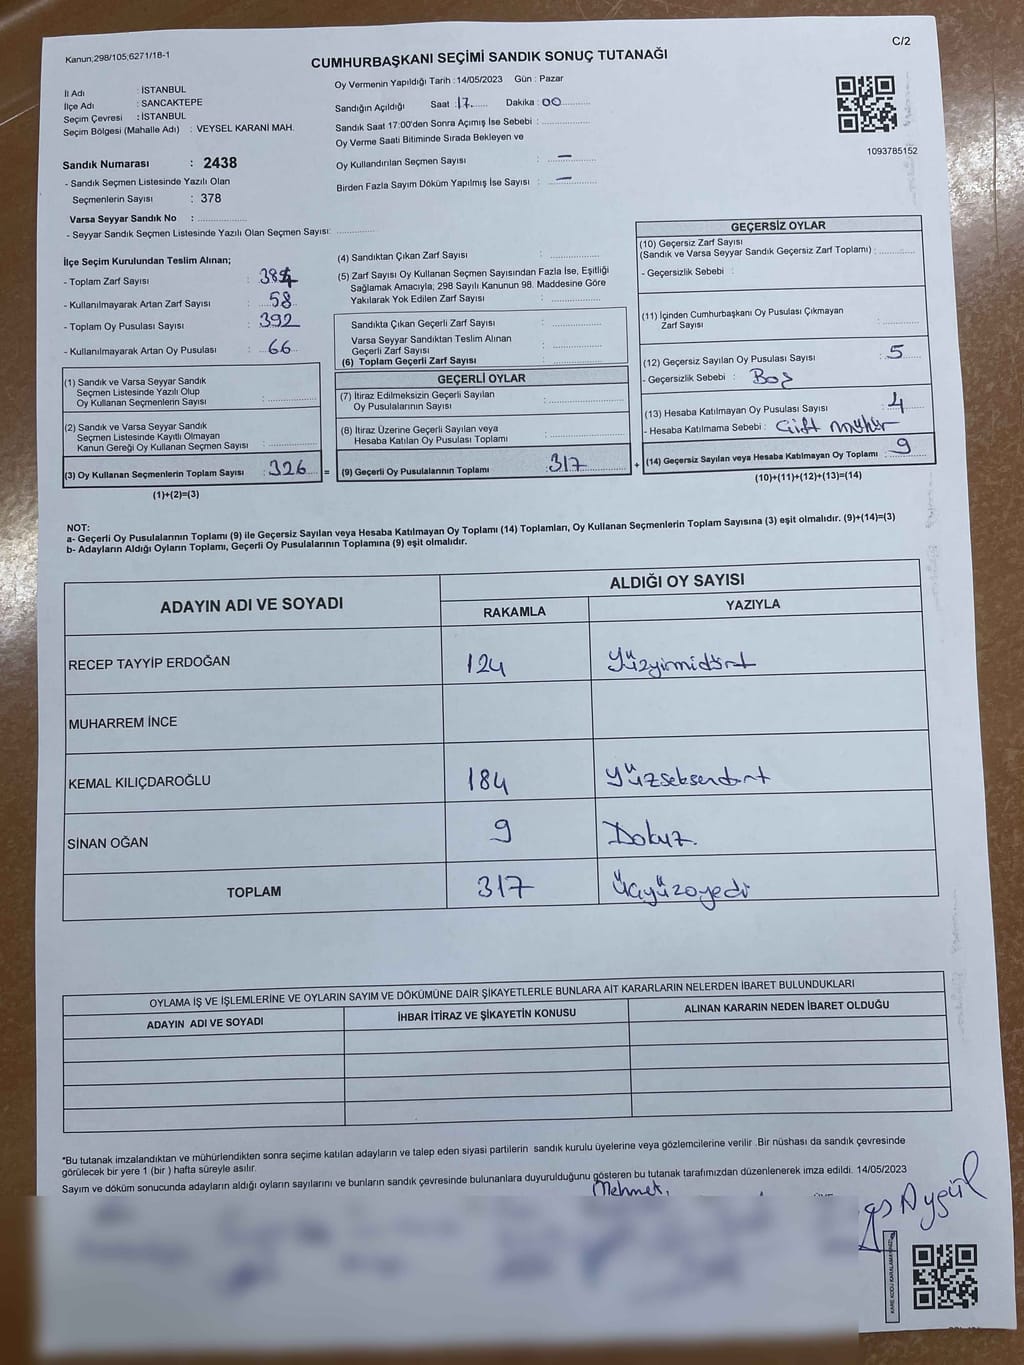 Kanun;298/105;6271/18-1
C/2
CUMHURBAŞKANI SEÇİMİ SANDIK SONUÇ TUTANAĞI
İl Adı : İSTANBUL
İlçe Adı : SANCAKTEPE
Seçim Çevresi : İSTANBUL
Seçim Bölgesi (Mahalle Adı) : VEYSEL KARANİ MAH.
Sandık Numarası : 2438
- Sandık Seçmen Listesinde Yazılı Olan
Seçmenlerin Sayısı : 378
Varsa Seyyar Sandık No : ....................
- Seyyar Sandık Seçmen Listesinde Yazılı Olan Seçmen Sayısı: ................
Oy Vermenin Yapıldığı Tarih : 14/05/2023 Gün : Pazar
Sandığın Açıldığı Saat : 17 Dakika : 00
Sandık Saat 17:00'den Sonra Açımış İse Sebebi : ....................
Oy Verme Saati Bitiminde Sırada Bekleyen ve
Oy Kullandırılan Seçmen Sayısı : —
Birden Fazla Sayım Döküm Yapılmış İse Sayısı : —
1093785152
İlçe Seçim Kurulundan Teslim Alınan;
- Toplam Zarf Sayısı : 384
- Kullanılmayarak Artan Zarf Sayısı : 58
- Toplam Oy Pusulası Sayısı : 392
- Kullanılmayarak Artan Oy Pusulası : 66
(1) Sandık ve Varsa Seyyar Sandık
Seçmen Listesinde Yazılı Olup
Oy Kullanan Seçmenlerin Sayısı : ....................
(2) Sandık ve Varsa Seyyar Sandık
Seçmen Listesinde Kayıtlı Olmayan
Kanun Gereği Oy Kullanan Seçmen Sayısı : ....................
(3) Oy Kullanan Seçmenlerin Toplam Sayısı : 326 =
(1)+(2)=(3)
(4) Sandıktan Çıkan Zarf Sayısı : ....................
(5) Zarf Sayısı Oy Kullanan Seçmen Sayısından Fazla İse, Eşitliği
Sağlamak Amacıyla; 298 Sayılı Kanunun 98. Maddesine Göre
Yakılarak Yok Edilen Zarf Sayısı : ....................
Sandıkta Çıkan Geçerli Zarf Sayısı : ....................
Varsa Seyyar Sandıktan Teslim Alınan
Geçerli Zarf Sayısı : ....................
(6) Toplam Geçerli Zarf Sayısı : ....................
GEÇERLİ OYLAR
(7) İtiraz Edilmeksizin Geçerli Sayılan
Oy Pusulalarının Sayısı : ....................
(8) İtiraz Üzerine Geçerli Sayılan veya
Hesaba Katılan Oy Pusulası Toplamı : ....................
(9) Geçerli Oy Pusulalarının Toplamı : 317 +
GEÇERSİZ OYLAR
(10) Geçersiz Zarf Sayısı
(Sandık ve Varsa Seyyar Sandık Geçersiz Zarf Toplamı) : ............
- Geçersizlik Sebebi :
(11) İçinden Cumhurbaşkanı Oy Pusulası Çıkmayan
Zarf Sayısı : ............
(12) Geçersiz Sayılan Oy Pusulası Sayısı : 5
- Geçersizlik Sebebi : Boş
(13) Hesaba Katılmayan Oy Pusulası Sayısı : 4
- Hesaba Katılmama Sebebi : Çift mühür
(14) Geçersiz Sayılan veya Hesaba Katılmayan Oy Toplamı : 9
(10)+(11)+(12)+(13)=(14)
NOT:
a- Geçerli Oy Pusulalarının Toplamı (9) ile Geçersiz Sayılan veya Hesaba Katılmayan Oy Toplamı (14) Toplamları, Oy Kullanan Seçmenlerin Toplam Sayısına (3) eşit olmalıdır. (9)+(14)=(3)
b- Adayların Aldığı Oyların Toplamı, Geçerli Oy Pusulalarının Toplamına (9) eşit olmalıdır.
ADAYIN ADI VE SOYADI
ALDIĞI OY SAYISI
RAKAMLA YAZIYLA
RECEP TAYYİP ERDOĞAN 124 Yüzyirmidört
MUHARREM İNCE
KEMAL KILIÇDAROĞLU 184 Yüzseksendört
SİNAN OĞAN 9 Dokuz.
TOPLAM 317 Üçyüzoyedi
OYLAMA İŞ VE İŞLEMLERİNE VE OYLARIN SAYIM VE DÖKÜMÜNE DAİR ŞİKAYETLERLE BUNLARA AİT KARARLARIN NELERDEN İBARET BULUNDUKLARI
ADAYIN ADI VE SOYADI İHBAR İTİRAZ VE ŞİKAYETİN KONUSU ALINAN KARARIN NEDEN İBARET OLDUĞU
*Bu tutanak imzalandıktan ve mühürlendikten sonra seçime katılan adayların ve talep eden siyasi partilerin sandık kurulu üyelerine veya gözlemcilerine verilir .Bir nüshası da sandık çevresinde
görülecek bir yere 1 (bir ) hafta süreyle asılır.
Sayım ve döküm sonucunda adayların aldığı oyların sayılarını ve bunların sandık çevresinde bulunanlara duyurulduğunu gösteren bu tutanak tarafımızdan düzenlenerek imza edildi. 14/05/2023
Mehmet,
Aygül